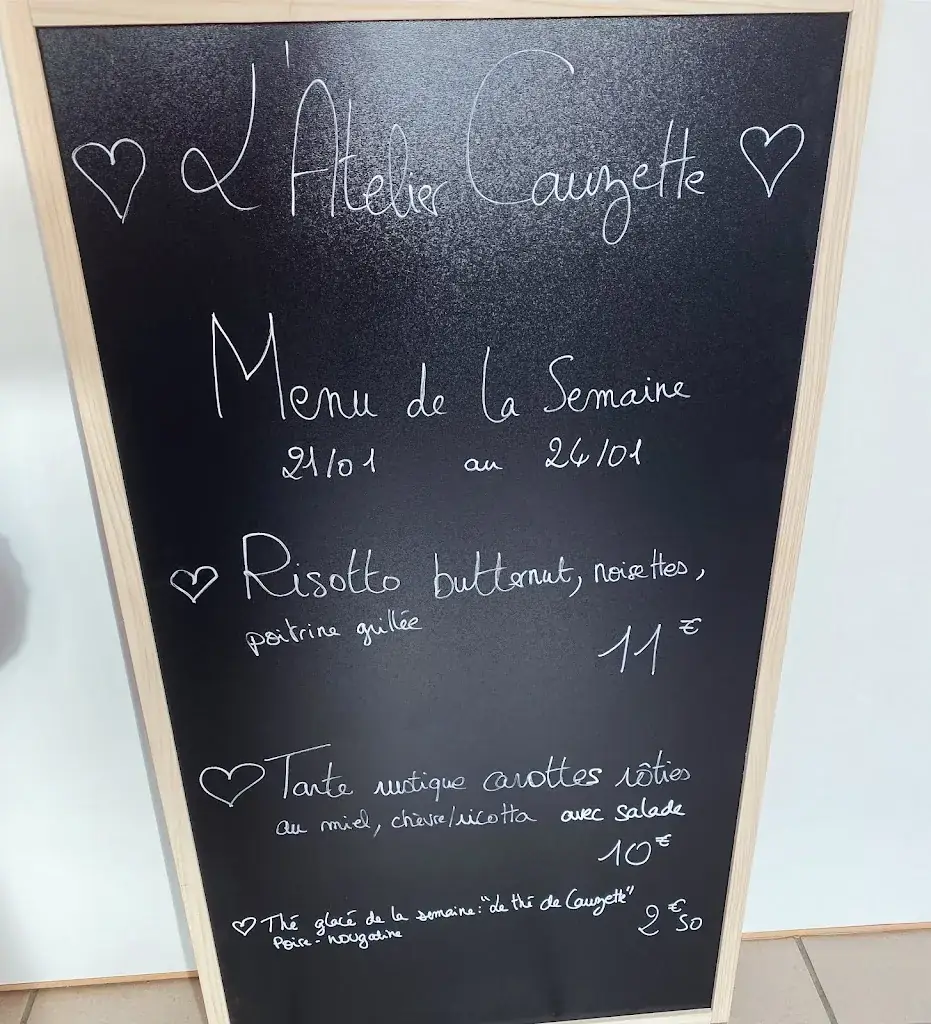 L'Atelier Cauzette
Menu de la Semaine
21/01 au 24/01
Risotto butternut, noisettes,
poitrine grillée
11€
Tarte rustique carottes rôties
au miel, chèvre/ricotta avec salade
10€
Thé glacé de la semaine: "Le thé de Cauzette"
Poire - nougatine
2€50